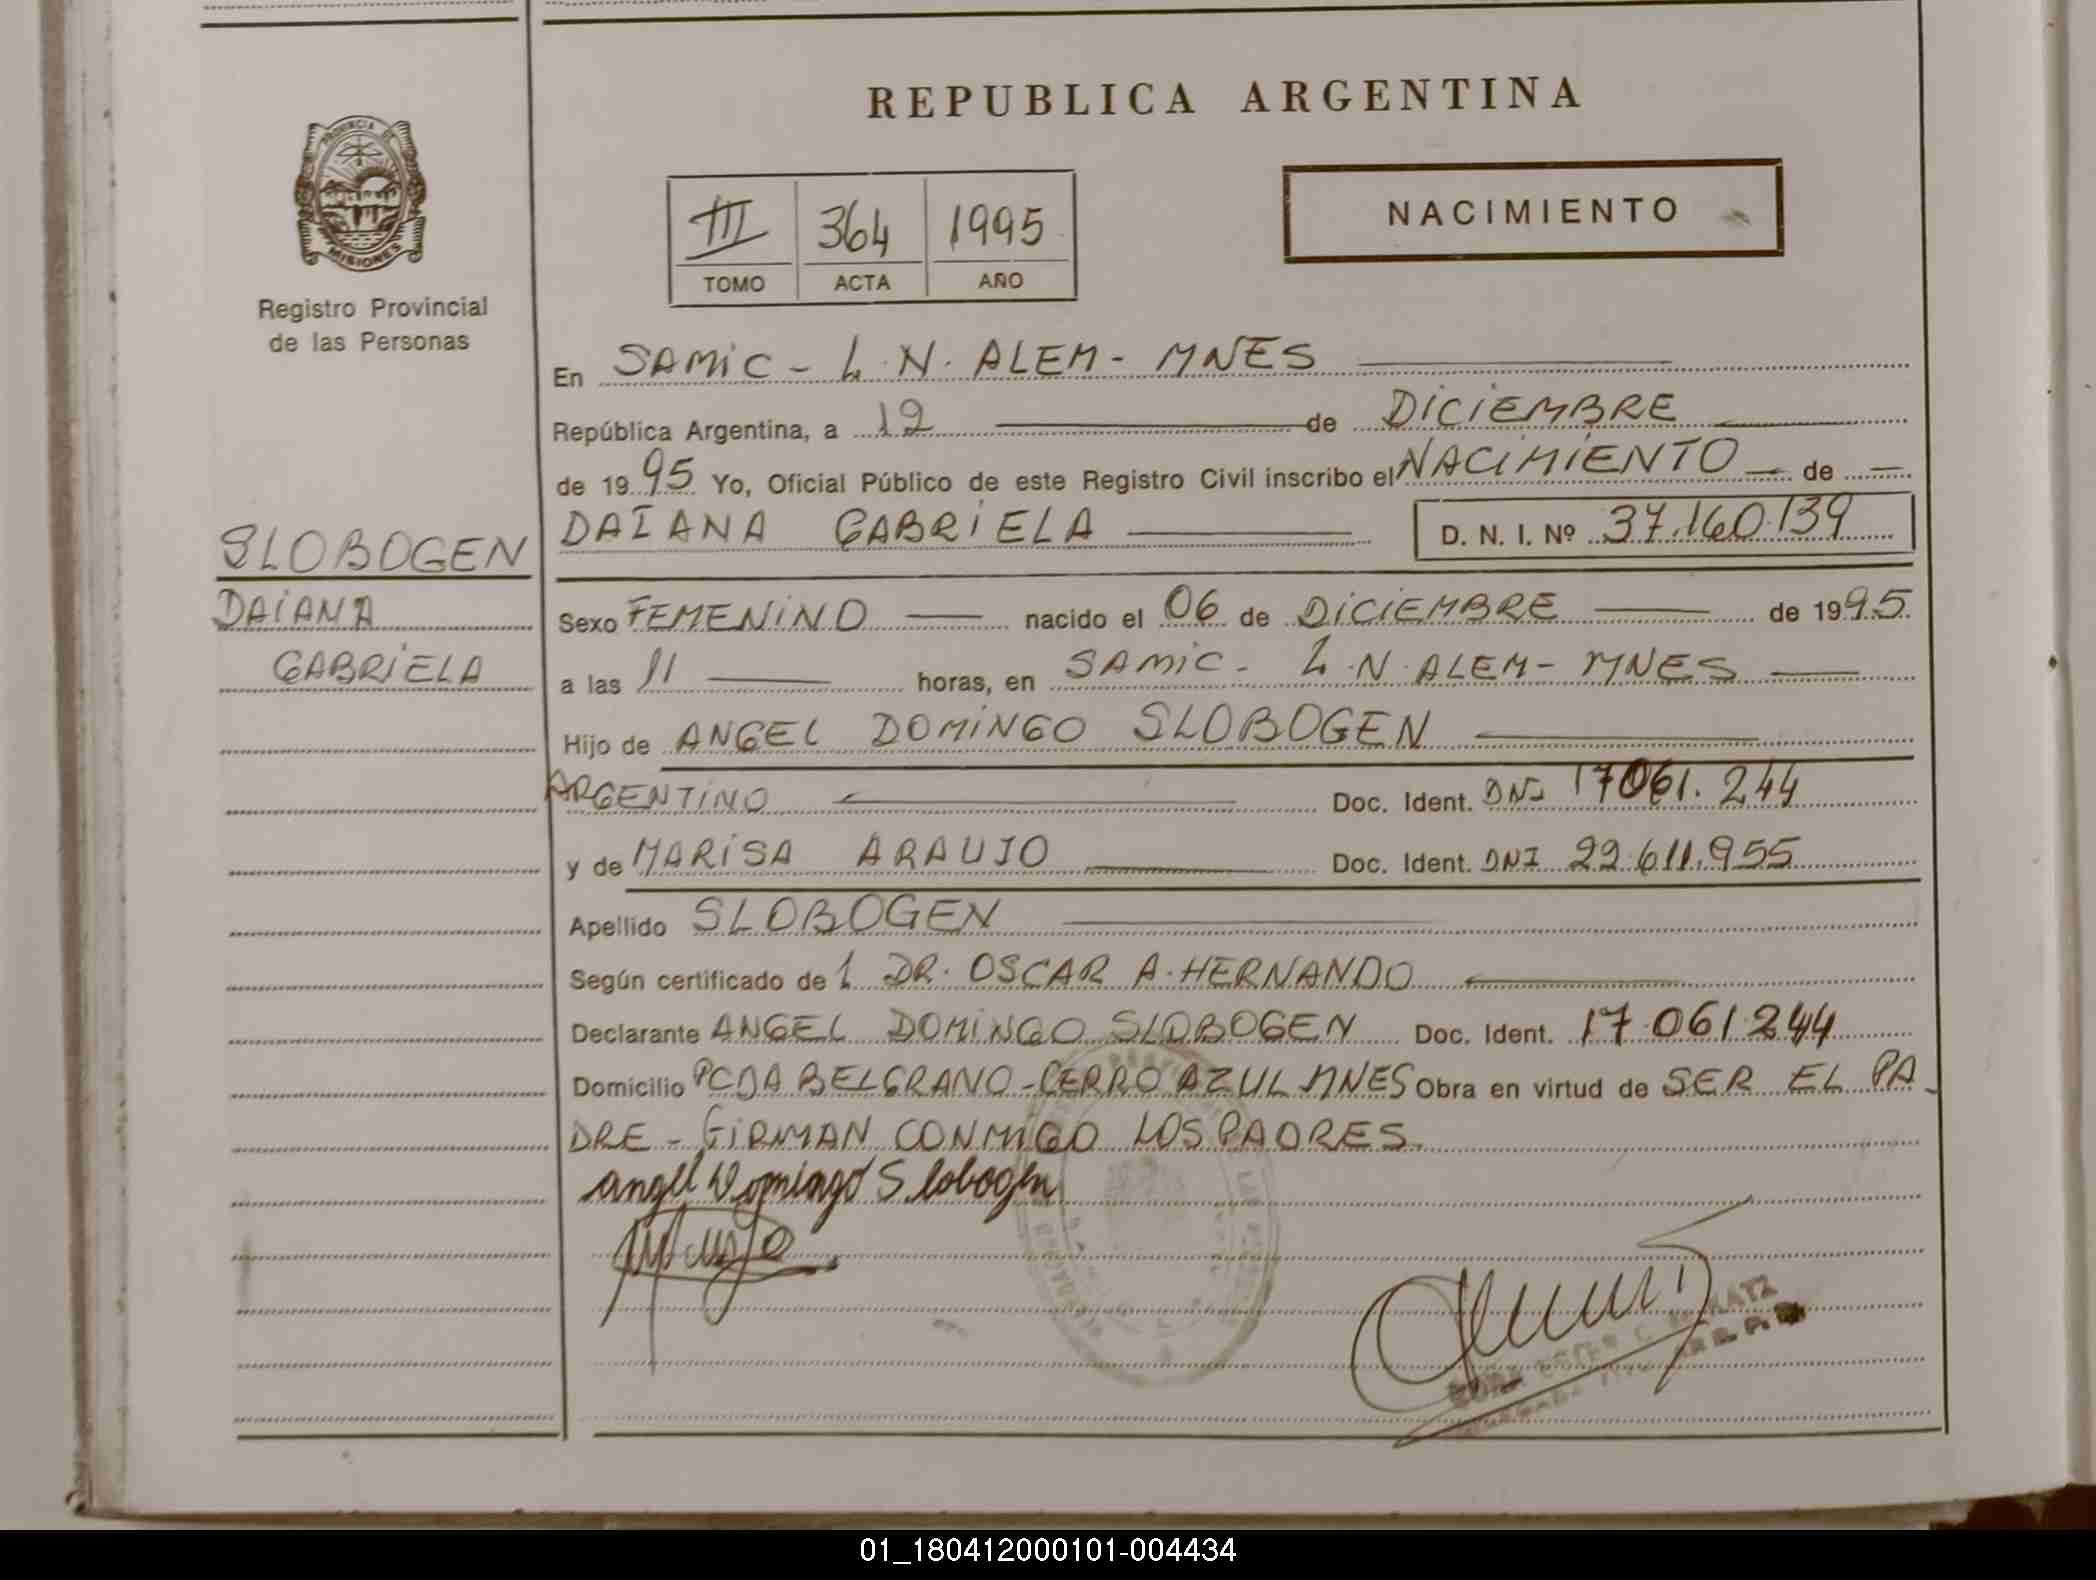 REPUBLICA ARGENTINA
PROVINCIA DE
MISIONES
Registro Provincial
de las Personas
III 364 1995
TOMO ACTA AÑO
NACIMIENTO
En SAMIC - L.N. ALEM - MNES
República Argentina, a 12 de DICIEMBRE
de 1995 Yo, Oficial Público de este Registro Civil inscribo el NACIMIENTO de
DAIANA GABRIELA D. N. I. Nº 37.160.139
SLOBOGEN
DAIANA
GABRIELA
Sexo FEMENINO nacido el 06 de DICIEMBRE de 1995.
a las 11 horas, en SAMIC - L.N. ALEM - MNES
Hijo de ANGEL DOMINGO SLOBOGEN
ARGENTINO Doc. Ident. DNI 17061.244
y de MARISA ARAUJO Doc. Ident. DNI 22.611.955
Apellido SLOBOGEN
Según certificado de l DR. OSCAR A. HERNANDO
Declarante ANGEL DOMINGO SLOBOGEN Doc. Ident. 17.061.244
Domicilio PCDA BELGRANO - CERRO AZUL MNES Obra en virtud de SER EL PA-
DRE - FIRMAN CONMIGO LOS PADRES.
angel Domingo Slobogen
01_180412000101-004434